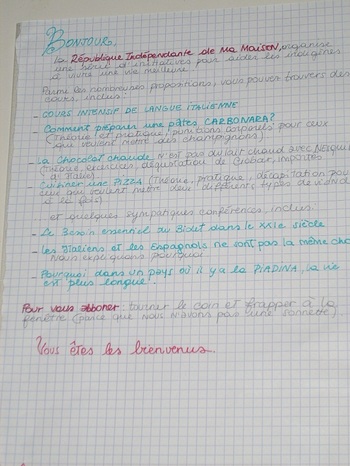 BONJOUR,
La République Indépendante de Ma Maison, organise
une série d'initiatives pour aider les indigènes
à vivre une vie meilleure.
Parmi les nombreuses propositions, vous pouvez trouver des
cours, inclus:
- COURS INTENSIF DE LANGUE ITALIENNE
- Comment préparer une pâtes CARBONARA?
(Théorie et pratique, punitions corporels pour ceux
qui veulent mettre des champignons)
- La Chocolat chaude n'est pas du lait chaud avec
(Théorie, exercices, dégustation de importés
d'Italie)
Cuisiner une PIZZA (Théorie, pratique, décapitation pour
ceux que veulent mettre deux différents types de viande
à la fois)
et quelques sympatiques conférences, inclus:
- Le Besoin essentiel du Bidet dans le XXIe siècle
- Les Italiens et les Espagnols ne sont pas la même cho
Nous expliquons pourquoi
- Pourquoi dans un pays où il y a la PIADINA, la vie
est plus longue!
Pour vous abboner: tourner le coin et frapper à la
fenêtre (parce que nous n'avons pas une sonnette).
Vous êtes les bienvenus.